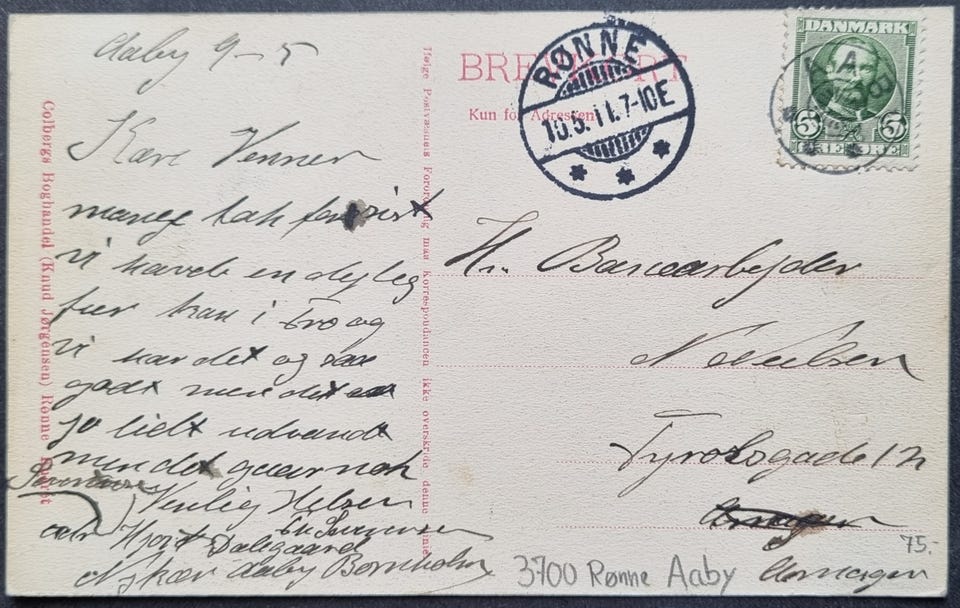 Aaby 9-5
Kære Venner
mange tak for sist
vi havde en dejleg
tur kan i tro og
vi har det og saa
godt men det er
jo lidt uvandt
men det gaar nok
Venlig Hilsen
Hjort Dalegaard
Nykær Aaby Bornholm
Colbergs Boghandel (Knud Jørgensen) Rønne
Ifølge Postvæsnets Forordning maa Korrespondancen ikke overskride denne Linie
BREVKORT
Kun for Adressen
RØNNE
10.5.11.7-10E
DANMARK
5 5
ØRE ØRE
Hr. Banearbejder
N. Nielsen
Tyrolsgade 12
Amager
Amager
75.-
3700 Rønne Aaby